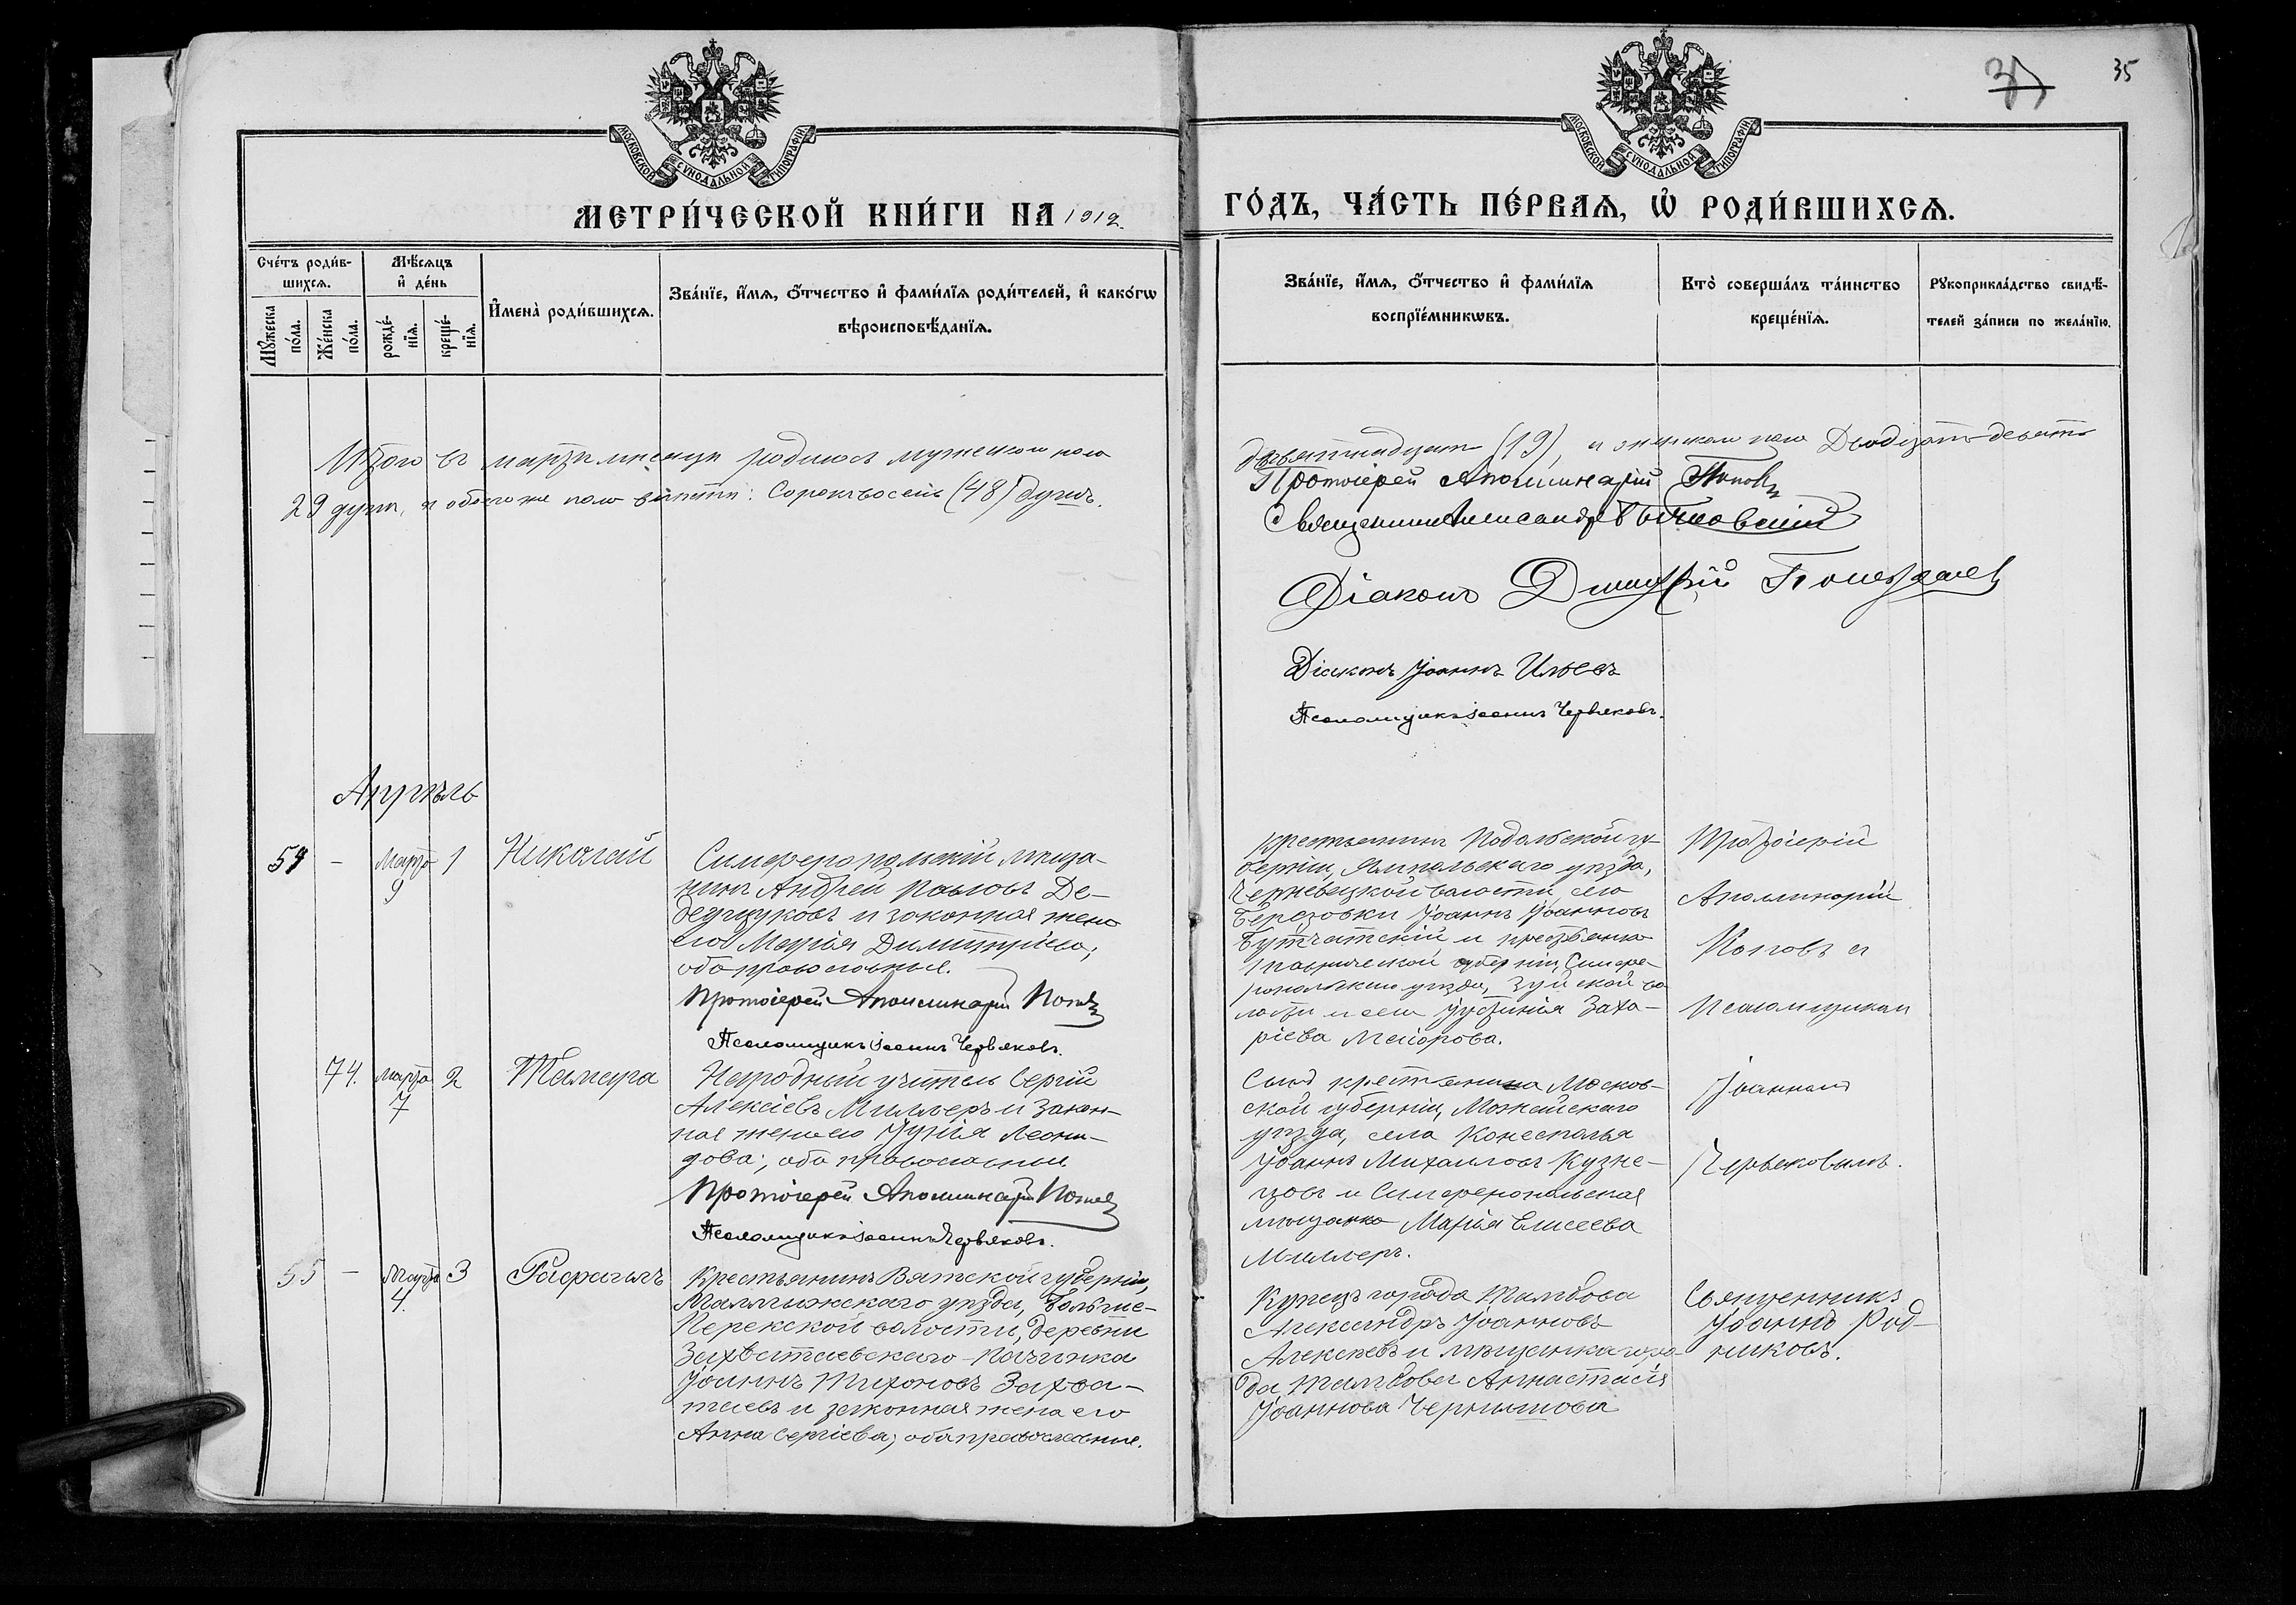 35
МОСКОВСКОЙ СУНОДАЛЬНОЙ ТИПОГРАФІИ
МОСКОВСКОЙ СУНОДАЛЬНОЙ ТИПОГРАФІИ
МЕТРИ́ЧЕСКОЙ КНИ́ГИ НА 1912
ГО́ДЪ, ЧА́СТЬ ПЕ́РВАѦ, Ѡ҆ РОДИ́ВШИХСѦ.
Сче́тъ роди́в-
шихсѧ.
Мꙋ́жеска
по́ла.
Же́нска
по́ла.
Мѣ́сѧцъ
и҆ де́нь
рожде́-
нїѧ.
креще́-
нїѧ.
И҆мена̀ роди́вшихсѧ.
Зва́нїе, и҆́мѧ, ѻ҆́тчество и҆ фами́лїѧ роди́телей, и҆ како́гѡ
вѣроисповѣ́данїѧ.
Зва́нїе, и҆́мѧ, ѻ҆́тчество и҆ фами́лїѧ
воспрїе́мникѡвъ.
Кто̀ соверша́лъ та́инство
креще́нїѧ.
Рꙋкоприкла́дство свидѣ́-
телей за́писи по жела́нїю.
Итого въ мартѣ мѣсяцѣ родилось мужскаго пола
29 душъ, а обоего же пола вмѣстѣ: Сорокъ восемь (48) душъ.
девятнадцать (19), а женскаго пола Двадцать девять
Протоіерей Аполлинарій Поповъ
Священникъ Александръ
Діаконъ Димитрій
Діаконъ Іоаннъ Ильевъ
Псаломщикъ Іоаннъ Червяковъ.
Апрѣль
54 - Марта 9 1 Николай
Симферопольскій мѣща-
нинъ Андрей Павловъ Де-
беущуковъ и законная жена
его Марія Димитріева;
оба православные.
Протоіерей Аполлинарій Поповъ
Псаломщикъ Іоаннъ Червяковъ.
Крестьянинъ Подольской гу-
берніи, Ямпольскаго уѣзда,
Черневецкой волости, села
Березовки Іоаннъ Іоанновъ
Бутчатскій и крестьянка
Таврической губерніи, Симфе-
ропольскаго уѣзда, Зуйской во
лости и села Іустинія Заха-
ріева Маіорова.
Протоіерей
Аполлинарій
Поповъ и
Псаломщикомъ
Іоанномъ
Червяковымъ.
74. марта 7 2 Тамара
Народный учитель Сергій
Алексіевъ Миллеръ и закон-
ная жена его Іулія Леони-
дова; оба православные
Протоіерей Аполлинарій Поповъ
Псаломщикъ Іоаннъ Червяковъ.
Сынъ крестьянина Москов-
ской губерніи, Можайскаго
уѣзда, села
Іоаннъ Михаиловъ Кузне-
цовъ и Симферопольская
мѣщанка Марія Елисеева
Миллеръ.
55 - Марта 4 3 Рафаилъ
Крестьянинъ Вятской губерніи,
Малмыжскаго уѣзда, Больше-
Перекской волости, деревни
Захватаевскаго-Починка
Іоаннъ Тихоновъ Захва-
таевъ и законная жена его
Анна Сергіева; оба православные.
Купецъ города Тамбова
Александръ Іоанновъ
Алексѣевъ и мѣщанка горо-
да Тамбова Анастасія
Іоаннова Чернышова
Священникъ
Іоаннъ Род-
никовъ.